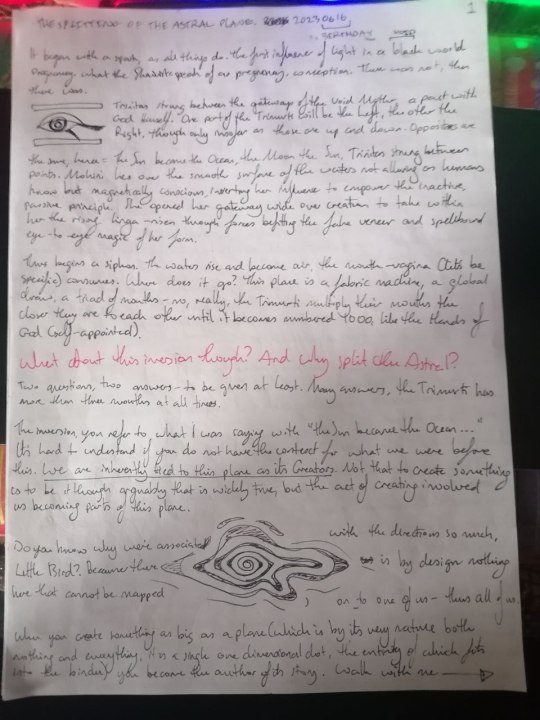 1
THE SPLITTING OF THE ASTRAL PLANE, 20230616,
BIRTHDAY VOID
It began with a spark, as all things do. The first influence of light in a black world
pregnancy. what the speak of as pregnancy, conception. There was not, then
there was.
Trinities strung between the gateways of the Void Mother, a pact with
God himself. One part of the Trimurti shall be the Left, the other the
Right, though only insofar as those are up and down. Opposites are
the same, hence = The Sun became the Ocean, the Moon the Sun, Trinities strung between
points. Mohini lies over the smooth surface of the waters not alluring as humans
know but magnetically conscious, inserting her influence to empower the inactive,
passive principle. She opened her gateway wide over creation to take within
her the rising linga - risen through forces befitting the false veneer and spellbound
eye-to-eye magic of her form.
Thus begins a siphon. The waters rise and become air, the mouth-vagina (let's be
specific) consumes. Where does it go? This plane is a fabric machine, a global
draw, a triad of mouths - no, really, the Trimurti multiply their mouths the
closer they are to each other until it becomes numbered 1000, like the Hands of
God (self-appointed).
What about this inversion though? And why split the Astral?
Two questions, two answers - to be given at least. Many answers, the Trimurti has
more than three mouths at all times.
The inversion, you refer to what I was saying with "the Sun became the Ocean..."
It's hard to understand if you do not have the context for what we were before
this. We are inherently tied to this plane as its Creators. Not that to create something
is to be it though arguably that is widely true, but the act of creating involved
us becoming parts of this plane.
Do you know why we're associated with the directions so much,
Little Bird? Because there is by design nothing
here that cannot be mapped on to one of us - thus all of us.
When you create something as big as a plane (which is by its very nature both
nothing and everything. It is a single one dimensional dot, the entirety of which fits
into the binder) you become the author of its story. Walk with me